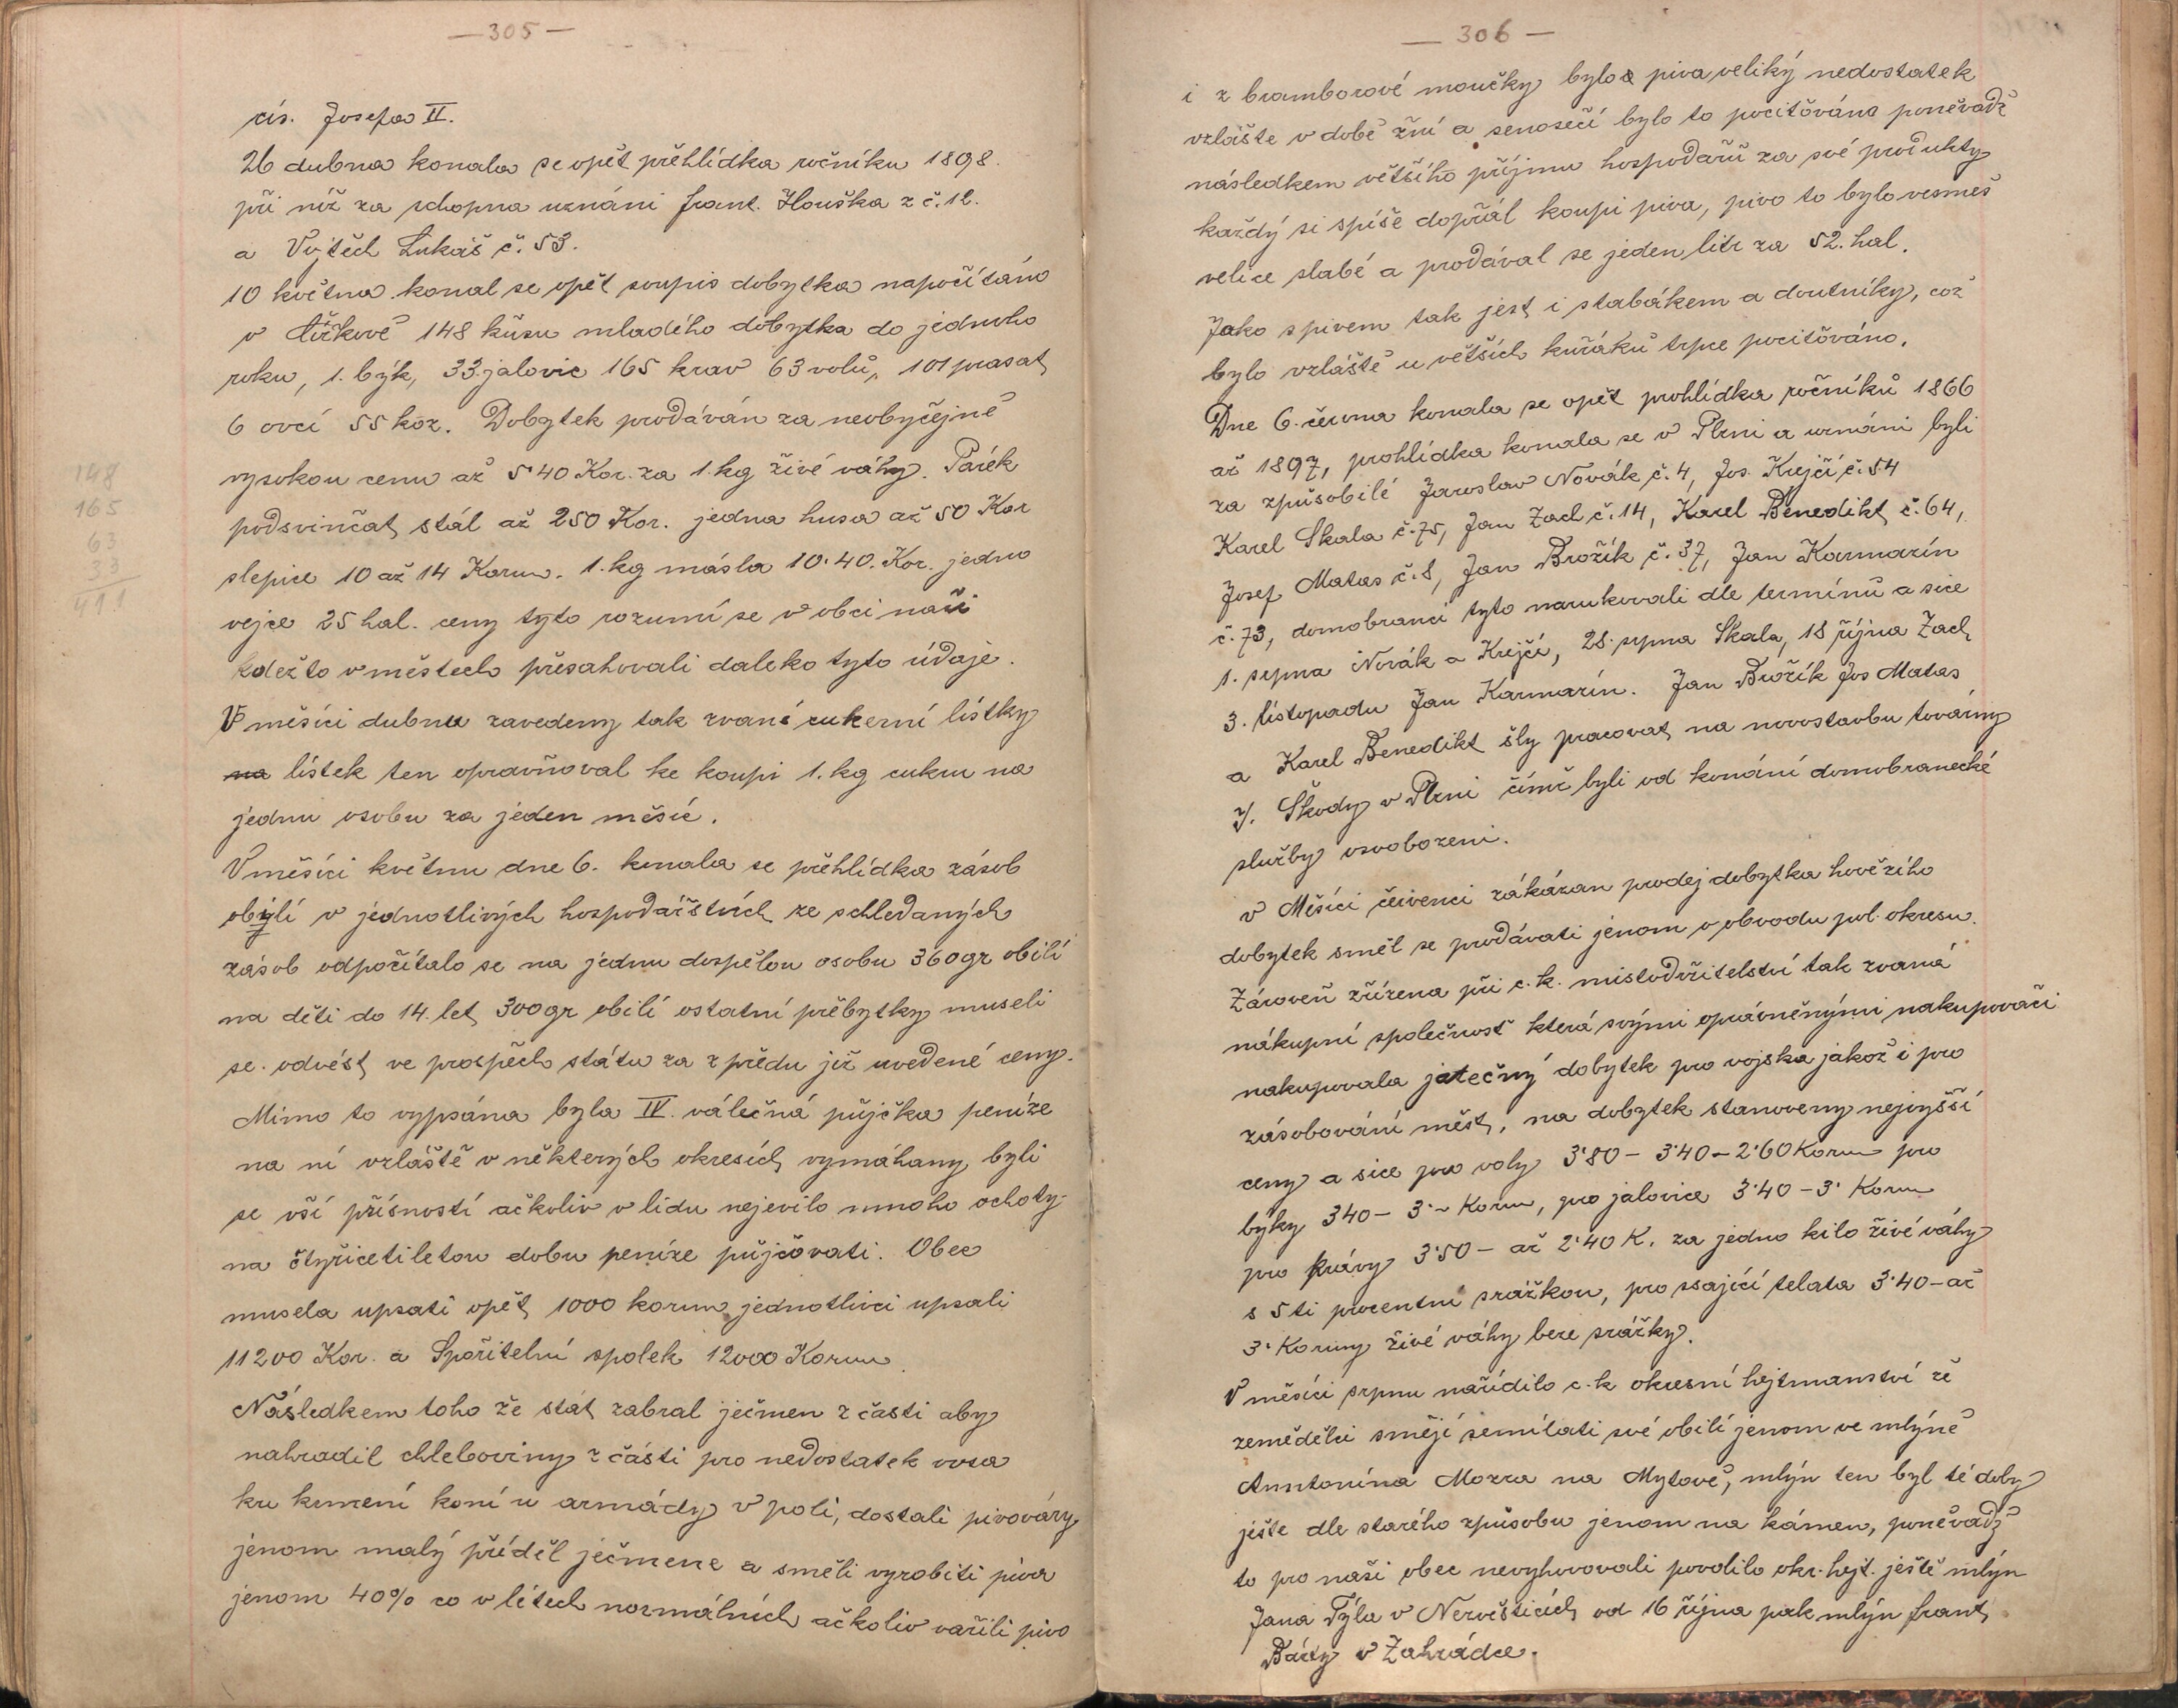 — 305 —
cís. Josefa II.
26 dubna konala se opět přehlídka ročníku 1898.
při níž za schopna uznáni Frant. Houška z č. 12.
a Vojtěch Lukáš č. 53.
10 května konal se opět soupis dobytka napočítáno
v Čížkově 148 kůsu mladého dobytka do jednoho
roku, 1. býk, 33 jalovic 165 krav 63 volů, 101 prasat
6 ovcí 55 koz. Dobytek prodáván za neobyčejně
vysokou cenu až 5·40 Kor. za 1. kg živé váhy. Párek
podsvinčat stál až 250 Kor. jedna husa až 50 Kor
slepice 10 až 14 Korun. 1. kg másla 10·40. Kor. jedno
vejce 25 hal. ceny tyto rozumí se v obci naší
kdežto v městech přesahovali daleko tyto údaje.
V měsíci dubnu zavedeny tak zvané cukerní lístky
na lístek ten opravňoval ke koupi 1. kg cukru na
jednu osobu za jeden měsíc.
V měsíci květnu dne 6. konala se přehlídka zásob
obilí v jednotlivých hospodářstvích ze schledaných
zásob odpočítalo se na jednu dospělou osobu 360 gr obilí
na děti do 14. let 300 gr obilí ostatní přebytky museli
se odvést ve prospěch státu za z předu již uvedené ceny.
Mimo to vypsána byla IV. válečná půjčka peníze
na ní vzláště v některých okresích vymáhany byli
se vší přísností ačkoliv v lidu nejevilo mnoho ochoty
na čtyřicetiletou dobu peníze půjčovati. Obec
musela upsati opět 1000 korun jednotlivci upsali
11200 Kor. a Spořitelní spolek 12000 Korun
Následkem toho že stát zabral ječmen z časti aby
nahradil chleboviny z části pro nedostatek ovsa
ku krmení koní u armády v poli, dostali pivováry
jenom malý příděl ječmene a směli vyrobiti piva
jenom 40% co v létech normálních ačkoliv vařili pivo
148
165
63
33
411
— 306 —
i z bramborové moučky bylo piva veliký nedostatek
vzlášte v době žní a senosečí bylo to pocitováno poněvadž
následkem většího příjmu hospodařů za své produkty
každý si spíše dopřál koupi piva, pivo to bylo vesmes
velice slabé a prodával se jeden litr za 52. hal.
Jako s pivem tak jest i s tabákem a doutníky, což
bylo vzláště u větších kuřáků trpce pocitováno.
Dne 6. června konala se opět prohlídka ročníků 1866
až 1897, prohlídka konala se v Plzni a uznáni byli
za způsobilé Jaroslav Novák č. 4, Jos. Krejčí č. 54
Karel Skala č. 75, Jan Zach č. 14, Karel Benedikt č. 64,
Josef Matas č. 8, Jan Brožík č. 37, Jan Karmazín
č. 73, domobranci tyto narukovali dle termínů a sice
1. srpna Novák a Krejčí, 28. srpna Skala, 18 října Zach
3. listopadu Jan Karmazín. Jan Brožík Jos Matas
a Karel Benedikt šly pracovat na novostavbu továrny
Y. Škody v Plzni čímž byli od konání domobranecké
služby osvobozeni.
v Měsíci červenci zákázan prodej dobytka hovězího
dobytek směl se prodávati jenom v obvodu pol. okresu.
Zároveň zřízena při c. k. mistodržitelství tak zvaná
nákupní společnost která svými oprávněnými nakupovači
nakupovala jatečný dobytek pro vojska jakož i pro
zásobování měst, na dobytek stanoveny nejvyšší
ceny a sice pro voly 3·80 – 3·40 – 2·60 Korun pro
býky 340 – 3·– Korun, pro jalovice 3·40 – 3· Korun
pro krávy 3·50 – až 2·40 K. za jedno kilo živé váhy
s 5ti procentní srážkou, pro ssající telata 3·40 – až
3· Koruny živé váhy beze srážky.
V měsíci srpnu nařídilo c. k okresní hejtmanství že
zemědělci smějí semílati své obilí jenom ve mlýně
Anntonína Mozra na Mytově, mlýn ten byl té doby
ješte dle starého způsobu jenom na kámen, poněvadž
to pro naši obec nevyhovovali povolilo okr. hejt. ještě mlýn
Jana Týla v Nezvěsticích od 16 října pak mlýn Frant
Bárty v Zahrádce.